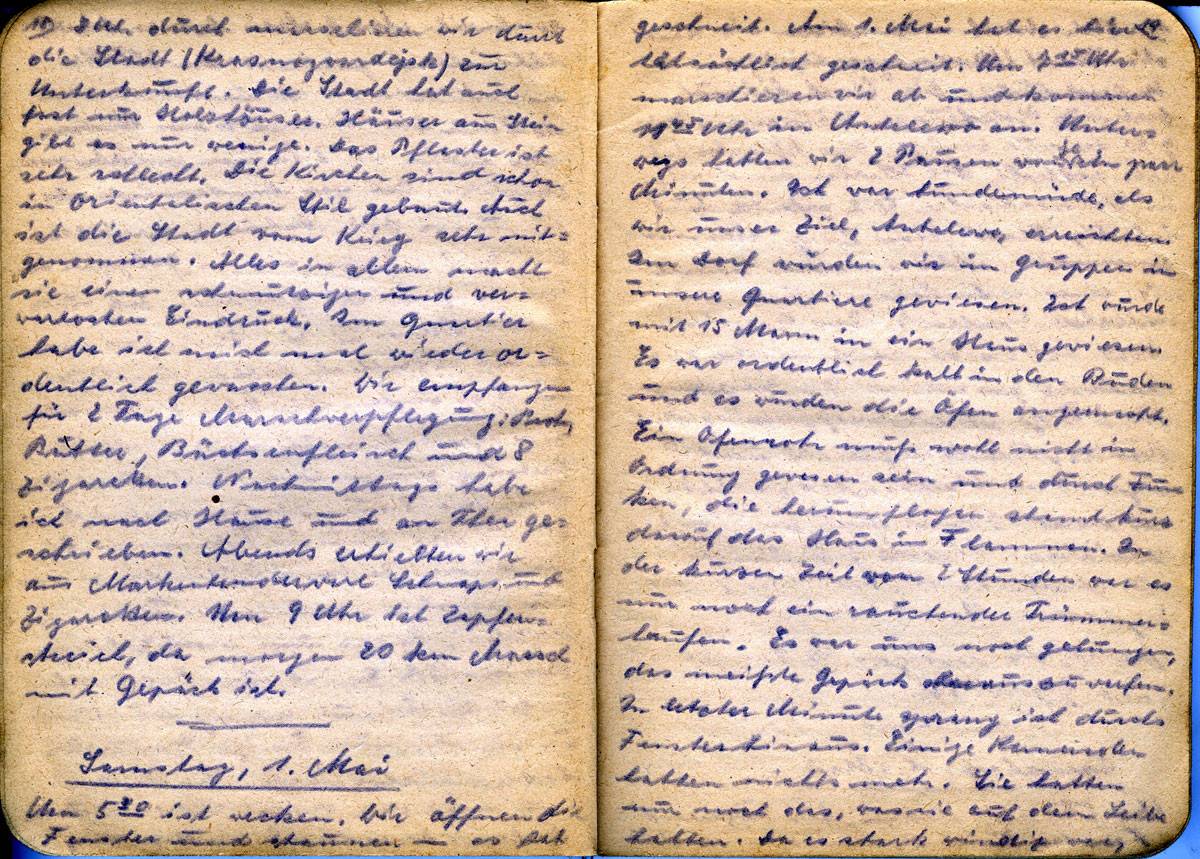 18) Uhr durch marschieren wir durch
die Stadt (Krasnogwardejsk) zur
Unterkunft. Die Stadt hat auch
fast nur Holzhäuser. Häuser aus Stein
gibt es nur wenige. Das Pflaster ist
sehr schlecht. Die Kirchen sind schon
in orientalischen Stil gebaut. Auch
ist die Stadt vom Krieg sehr mit=
genommen. Alles in allem macht
sie einen schmutzigen und ver=
warlosten Eindruck. Im Quartier
habe ich mich mal wieder or=
dentlich gewaschen. Wir empfangen
für 2 Tage Marschverpflegung: Brot,
Butter, Büchsenfleisch und 8
Zigaretten. Nachmittags habe
ich nach Hause und an Ther ge=
schrieben. Abends erhielten wir
aus Marketenderware Schnaps und
Zigaretten. Um 9 Uhr ist Zapfen=
streich, da morgen 20 km Marsch
mit Gepäck ist.
Samstag, 1. Mai
Um 5³⁰ ist wecken. Wir öffnen die
Fenster und staunen — es hat
19
geschneit. Am 1. Mai hat es hier
tatsächlich geschneit. Um 7 Uhr
marschieren wir ab und kommen
Uhr in Antelewo an. Unter=
wegs hatten wir 2 Pausen von zehn paar
Minuten. Ich war hundemüde, als
wir unser Ziel, Antelewo, erreichten.
Im Dorf wurden wir in Gruppen in
unsere Quartiere gewiesen. Ich wurde
mit 15 Mann in ein Haus gewiesen.
Es war ordentlich kalt in den Buden
und es wurden die Öfen angemacht.
Ein Ofenrohr muß wohl nicht in
Ordnung gewesen sein und durch Fun=
ken, die herumflogen stand kurz
darauf das Haus in Flammen. In
der kurzen Zeit von 2 Stunden war es
nur noch ein rauchender Trümmer=
haufen. Es war uns noch gelungen,
das meiste Gepäck herauszuwerfen.
In letzter Minute sprang ich durchs
Fenster hinaus. Einige Kameraden
hatten nichts mehr. Sie hatten
nur noch das, was sie auf dem Leibe
hatten. Da es stark windig war,